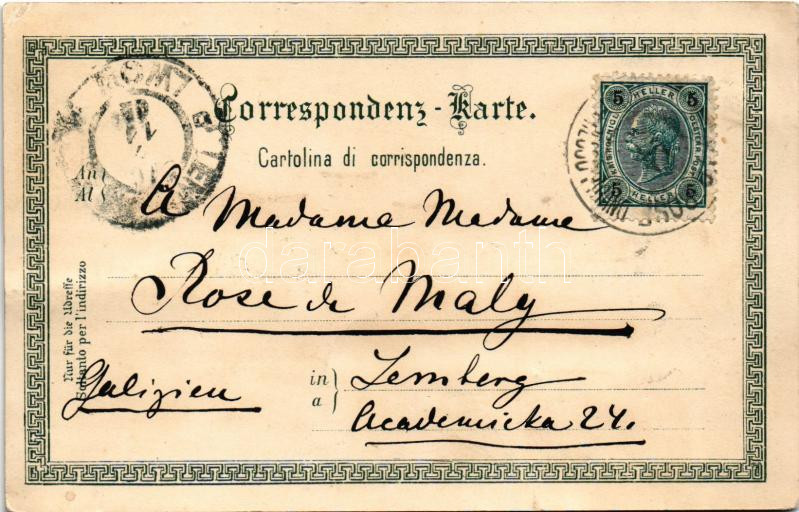 Correspondenz-Karte.
Cartolina di corrispondenza.
5 HELLER 5
5 HELLER 5
A Madame Madame
Rose de Maly
in Lemberg
a
Academicka 24.
Galizien
Nur für die Adresse
Soltanto per l'indirizzo
An
Al
darabanth